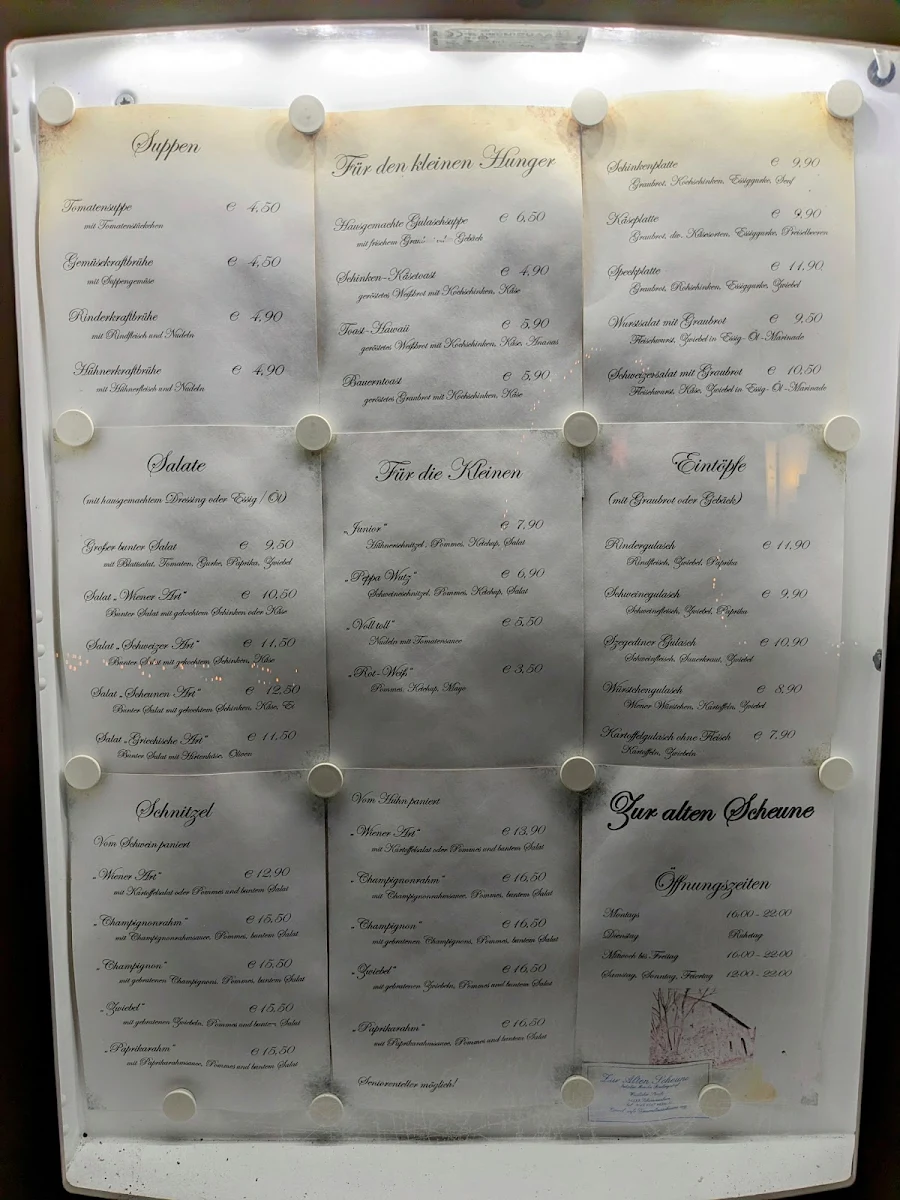 Suppen
Tomatensuppe € 4,50
mit Tomatenstückchen
Gemüsekraftbrühe € 4,50
mit Suppengemüse
Rinderkraftbrühe € 4,90
mit Rindfleisch und Nudeln
Hühnerkraftbrühe € 4,90
mit Hühnerfleisch und Nudeln
Für den kleinen Hunger
Hausgemachte Gulaschsuppe € 6,50
mit frischem Gebäck
Schinken-Käsetoast € 4,90
geröstetes Weißbrot mit Kochschinken, Käse
Toast-Hawaii € 5,90
geröstetes Weißbrot mit Kochschinken, Käse, Ananas
Bauerntoast € 5,90
geröstetes Graubrot mit Kochschinken, Käse
Schinkenplatte € 9,90
Graubrot, Kochschinken, Essiggurke, Senf
Käseplatte € 9,90
Graubrot, div. Käsesorten, Essiggurke, Preiselbeeren
Speckplatte € 11,90
Graubrot, Rohschinken, Essiggurke, Zwiebel
Wurstsalat mit Graubrot € 9,50
Fleischwurst, Zwiebel in Essig- Öl -Marinade
Schweizersalat mit Graubrot € 10,50
Fleischwurst, Käse, Zwiebel in Essig- Öl -Marinade
Salate
(mit hausgemachtem Dressing oder Essig / Öl)
Großer bunter Salat € 9,50
mit Blattsalat, Tomaten, Gurke, Paprika, Zwiebel
Salat „Wiener Art“ € 10,50
Bunter Salat mit gekochtem Schinken oder Käse
Salat „Schweizer Art“ € 11,50
Bunter Salat mit gekochtem Schinken, Käse
Salat „Scheunen Art“ € 12,50
Bunter Salat mit gekochtem Schinken, Käse, Ei
Salat „Griechische Art“ € 11,50
Bunter Salat mit Hirtenkäse, Oliven
Für die Kleinen
„Junior“ € 7,90
Hühnerschnitzel, Pommes, Ketchup, Salat
„Peppa Wutz“ € 6,90
Schweineschnitzel, Pommes, Ketchup, Salat
„Voll toll“ € 5,50
Nudeln mit Tomatensauce
„Rot-Weiß“ € 3,50
Pommes, Ketchup, Mayo
Eintöpfe
(mit Graubrot oder Gebäck)
Rindergulasch € 11,90
Rindfleisch, Zwiebel, Paprika
Schweinegulasch € 9,90
Schweinefleisch, Zwiebel, Paprika
Szegediner Gulasch € 10,90
Schweinefleisch, Sauerkraut, Zwiebel
Würstchengulasch € 8,90
Wiener Würstchen, Kartoffeln, Zwiebel
Kartoffelgulasch ohne Fleisch € 7,90
Kartoffeln, Zwiebeln
Schnitzel
Vom Schwein paniert
„Wiener Art“ € 12,90
mit Kartoffelsalat oder Pommes und buntem Salat
„Champignonrahm“ € 15,50
mit Champignonrahmsauce, Pommes, buntem Salat
„Champignon“ € 15,50
mit gebratenen Champignons, Pommes, buntem Salat
„Zwiebel“ € 15,50
mit gebratenen Zwiebeln, Pommes und buntem Salat
„Paprikarahm“ € 15,50
mit Paprikarahmsauce, Pommes und buntem Salat
Vom Huhn paniert
„Wiener Art“ € 13,90
mit Kartoffelsalat oder Pommes und buntem Salat
„Champignonrahm“ € 16,50
mit Champignonrahmsauce, Pommes, buntem Salat
„Champignon“ € 16,50
mit gebratenen Champignons, Pommes, buntem Salat
„Zwiebel“ € 16,50
mit gebratenen Zwiebeln, Pommes und buntem Salat
„Paprikarahm“ € 16,50
mit Paprikarahmsauce, Pommes und buntem Salat
Seniorenteller möglich!
Zur alten Scheune
Öffnungszeiten
Montags 16:00 - 22:00
Dienstag Ruhetag
Mittwoch bis Freitag 16:00 - 22:00
Samstag, Sonntag, Feiertag 12:00 - 22:00
Zur Alten Scheune